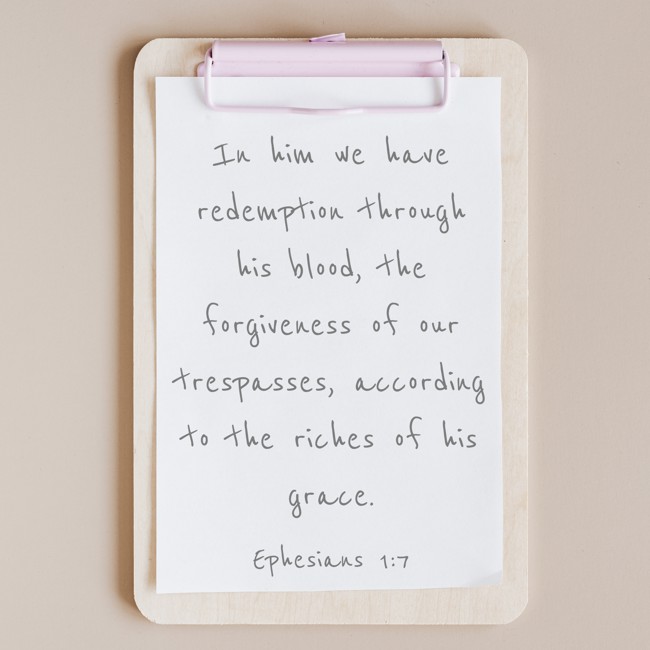 In him we have
redemption through
his blood, the
forgiveness of our
trespasses, according
to the riches of his
grace.
Ephesians 1:7